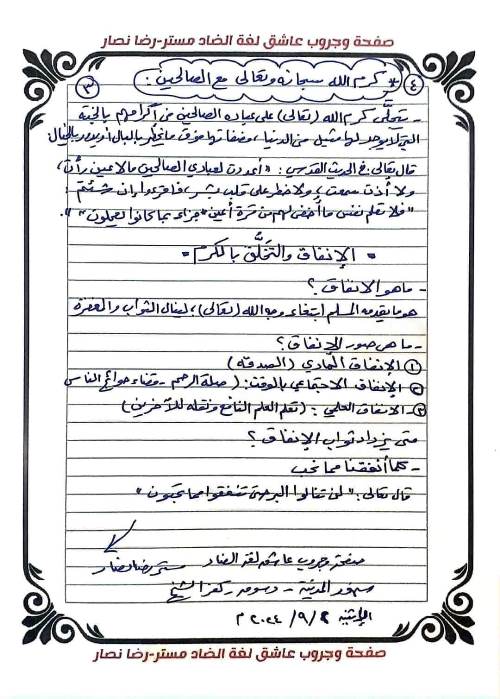 صفحة وجروب عاشق لغة الضاد مستر-رضا نصار
٤ * كرم الله سبحانه وتعالى مع الصالحين: ٣
- يتجلَّى كرم الله (تعالى) على عباده الصالحين من إكرامهم بالجنة
التي لا يوجد لها مثيل من الدنيا، فصفاتها فوق ما يخطر بالبال أو يدور بالخيال
قال تعالى في الحديث القدسي: "أعددت لعبادي الصالحين ما لا عين رأت،
ولا أذن سمعت، ولا خطر على قلب بشر، فاقرءوا إن شئتم
"فلا تعلم نفس ما أخفي لهم من قرة أعين جزاء بما كانوا يعملون".
= الإنفاق والتخلُّق بالكرم =
- ما هو الإنفاق؟
هو ما يقدمه المسلم ابتغاء وجه الله (تعالى)؛ لينال الثواب والمغفرة
- ما هي صور الإنفاق؟
١ الإنفاق المادي (الصدقة)
٢ الإنفاق الاجتماعي بالوقت: (صلة الرحم - قضاء حوائج الناس
٣- الإنفاق العلمي: (تعلم العلم النافع ونقله للآخرين)
متى يزداد ثواب الإنفاق؟
- كلما أنفقنا مما نحب
قال تعالى: "لن تنالوا البر حتى تنفقوا مما تحبون"
صفحة وجروب عاشق لغة الضاد
مستر رضا نصار
المدينة - دسوق - كفر الشيخ
الإثنين ٢/٩/٢٠٢٤ م
صفحة وجروب عاشق لغة الضاد مستر-رضا نصار